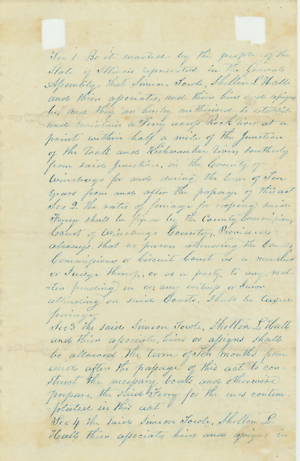 Sec 1 Be it enacted by the people of the
State of Illinois represented in the General
Assembly That Simeon Towle, Shelton L Hall
and their associates, and their heirs and assigns
be, and they are hereby authorised to establish
and maintain a Ferry across Rock river at a
point within half a mile of the Junction
of the Rock and Kishwaukee rivers, southerly
from said junction, in the County of
Winnebago for and during the term of Ten
years from and after the passage of this act
Sec 2 The rates of ferriage for crossing said
Ferry shall be fixed by the County Commissioners
Court of Winnebago County, Provided
always, that no person attending the County
Commissioners or Circuit Court as a member
or Judge thereof, or as a party to any matter
pending in or any witness or Juror
attending on said Courts, shall be
ferriage.
Sec 3 The said Simeon Towle, Shelton L Hall
and their associates, heirs or assigns shall
be allowed the term of months from
and after the passage of this act to con-
struct the necessary boats and otherwise
prepare the said Ferry for the uses contem-
plated in this act
Sec 4 The said Simeon Towle, Shelton L.
Hall their associates heirs and assigns in